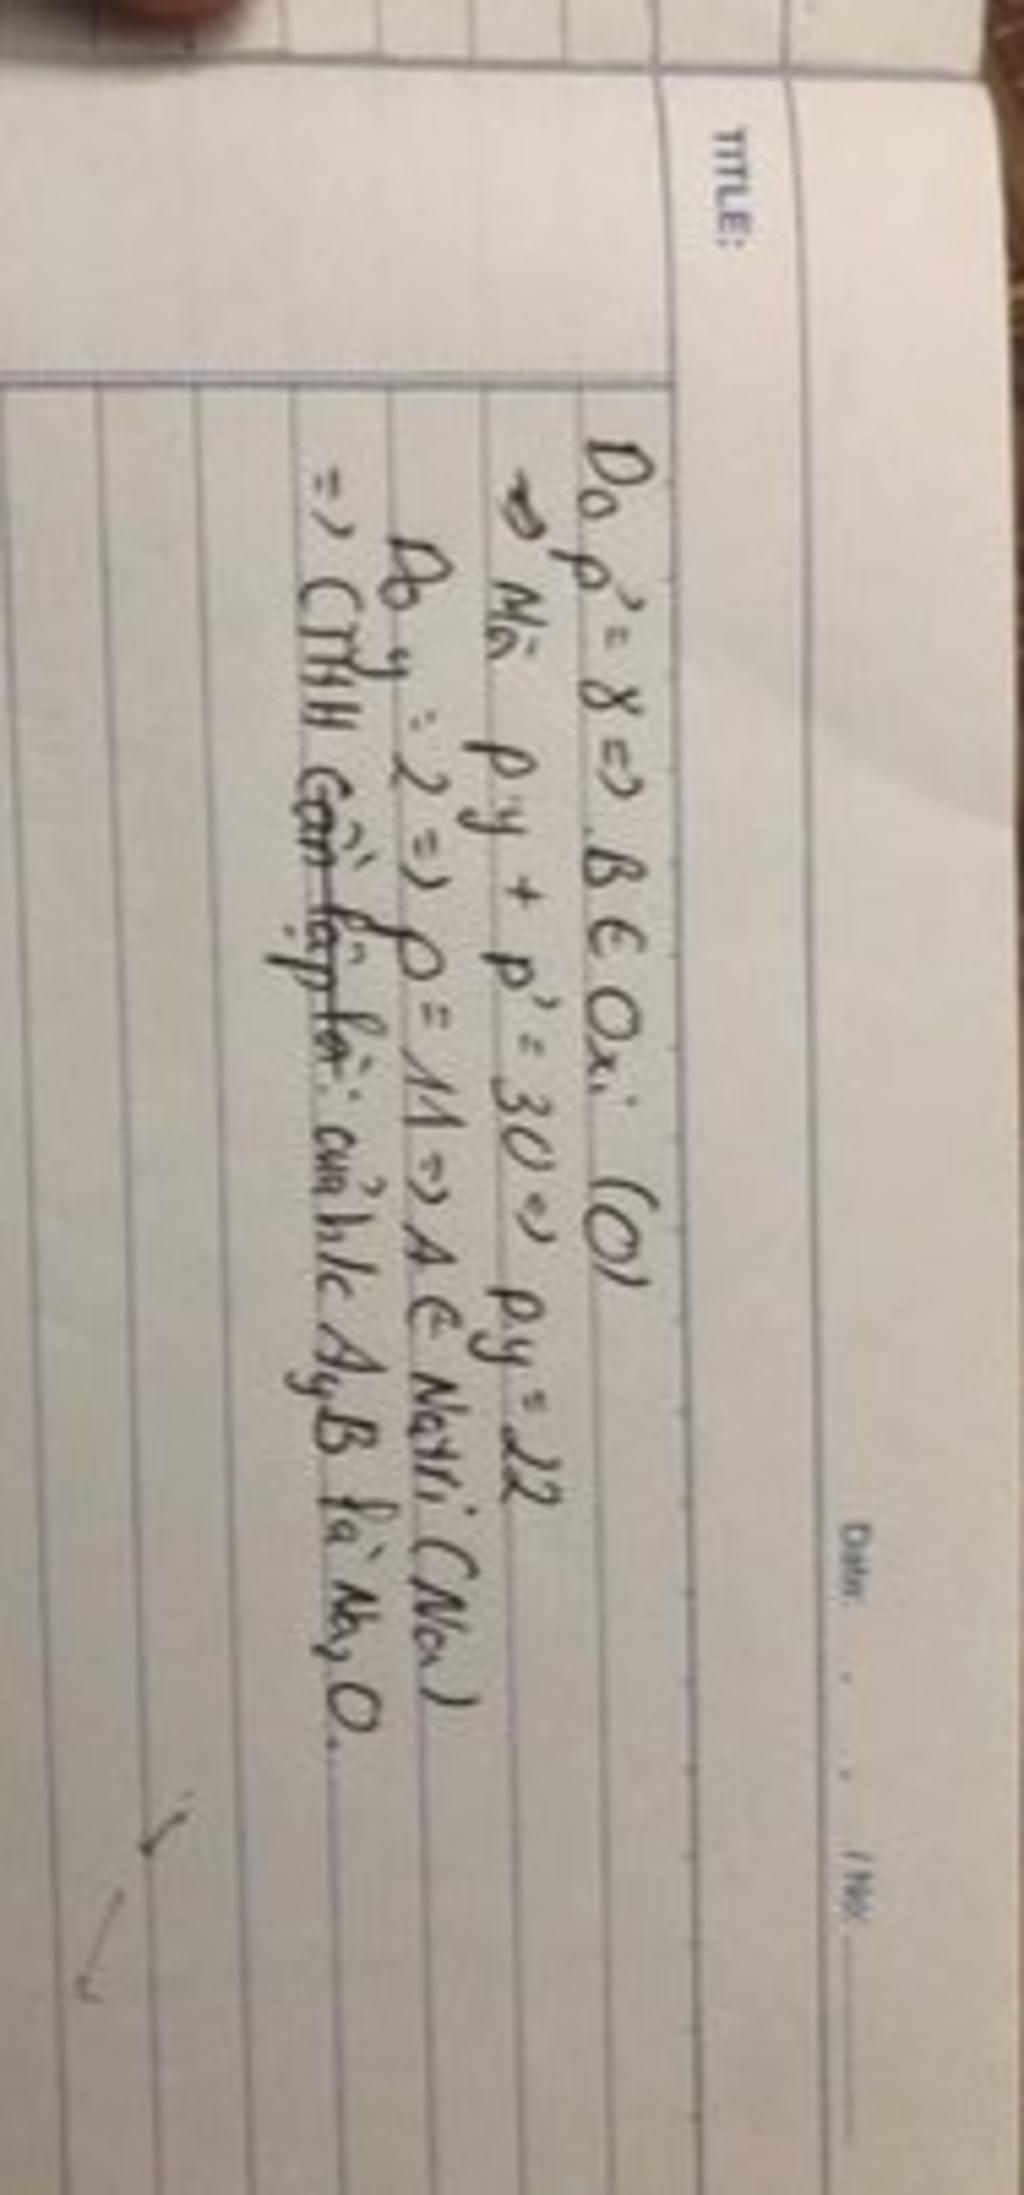 TITLE:
Date: / No:
Do p' = 8 => B ∈ Oxi (O)
Mà py + p' = 30 => py = 22
Do y = 2 => p = 11 => A ∈ Natri (Na)
=> CTHH cần lập là: của h/c AyB là Na2O.